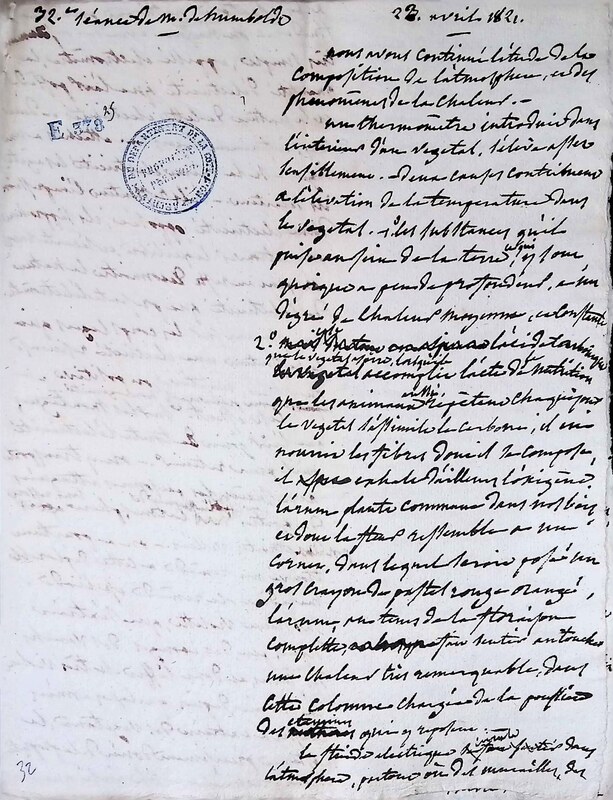 32.e séance de M. de humboldt
23. avril 1821.
nous avons continué l'étude de la
composition de l'atmosphere, et des
phenomènes de la chaleur. —
E 378
25
un thermomètre introduit dans
l'interieur d'un vegetal, s'élève assez
sensiblement. deux causes contribuent
a l'élévation de la temperature dans
le vegetal. 1o les substances qu'il
puise au sein de la terre et qui
quoique a peu de profondeur, a un
dégré de chaleur moyenne, et constante
2o
que le vegetal
le vegetal accomplit l'acte de nutrition
que les animaux répètent chaque jour
le vegetal s'assimile le carbone, il en
nourrit les fibres dont il se compose,
il exhale d'ailleurs l'oxigène
l'arum plante commune dans nos bois
et dont la fleur ressemble a un
cornet, dans lequel seroit posé un
gros crayon de pastel rouge orangé,
l'arum au tems de la floraison
complette, fait sentir au toucher
une chaleur très remarquable, dans
cette colonne chargée de la poussière
des étamines qui y repose.
le fluide electrique dans
l'atmosphere, partout où des murailles, des
32